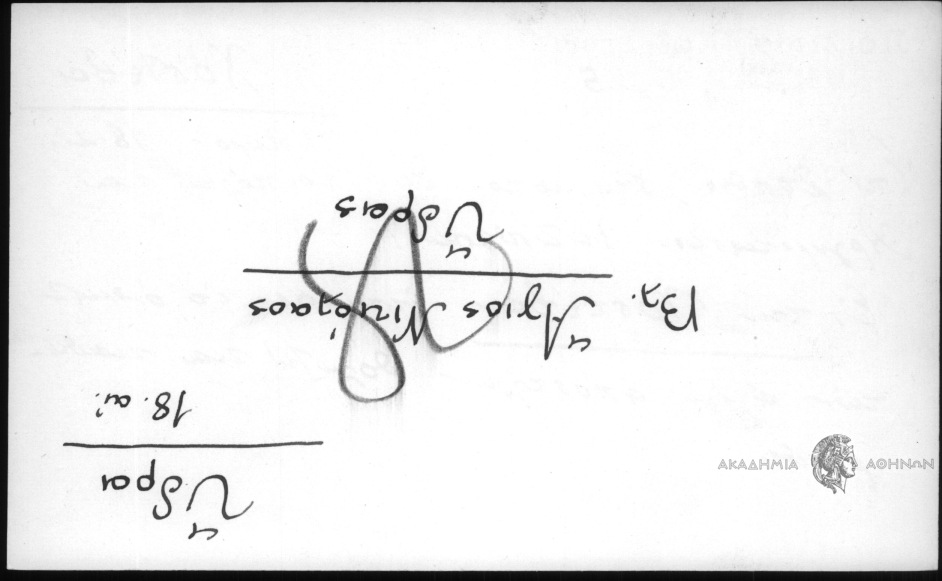 Ὕδρα
18. αἰ.
Βλ. Ἅγιος Νικόλαος
Ὕδρας
ΑΚΑΔΗΜΙΑ ΑΘΗΝΩΝ